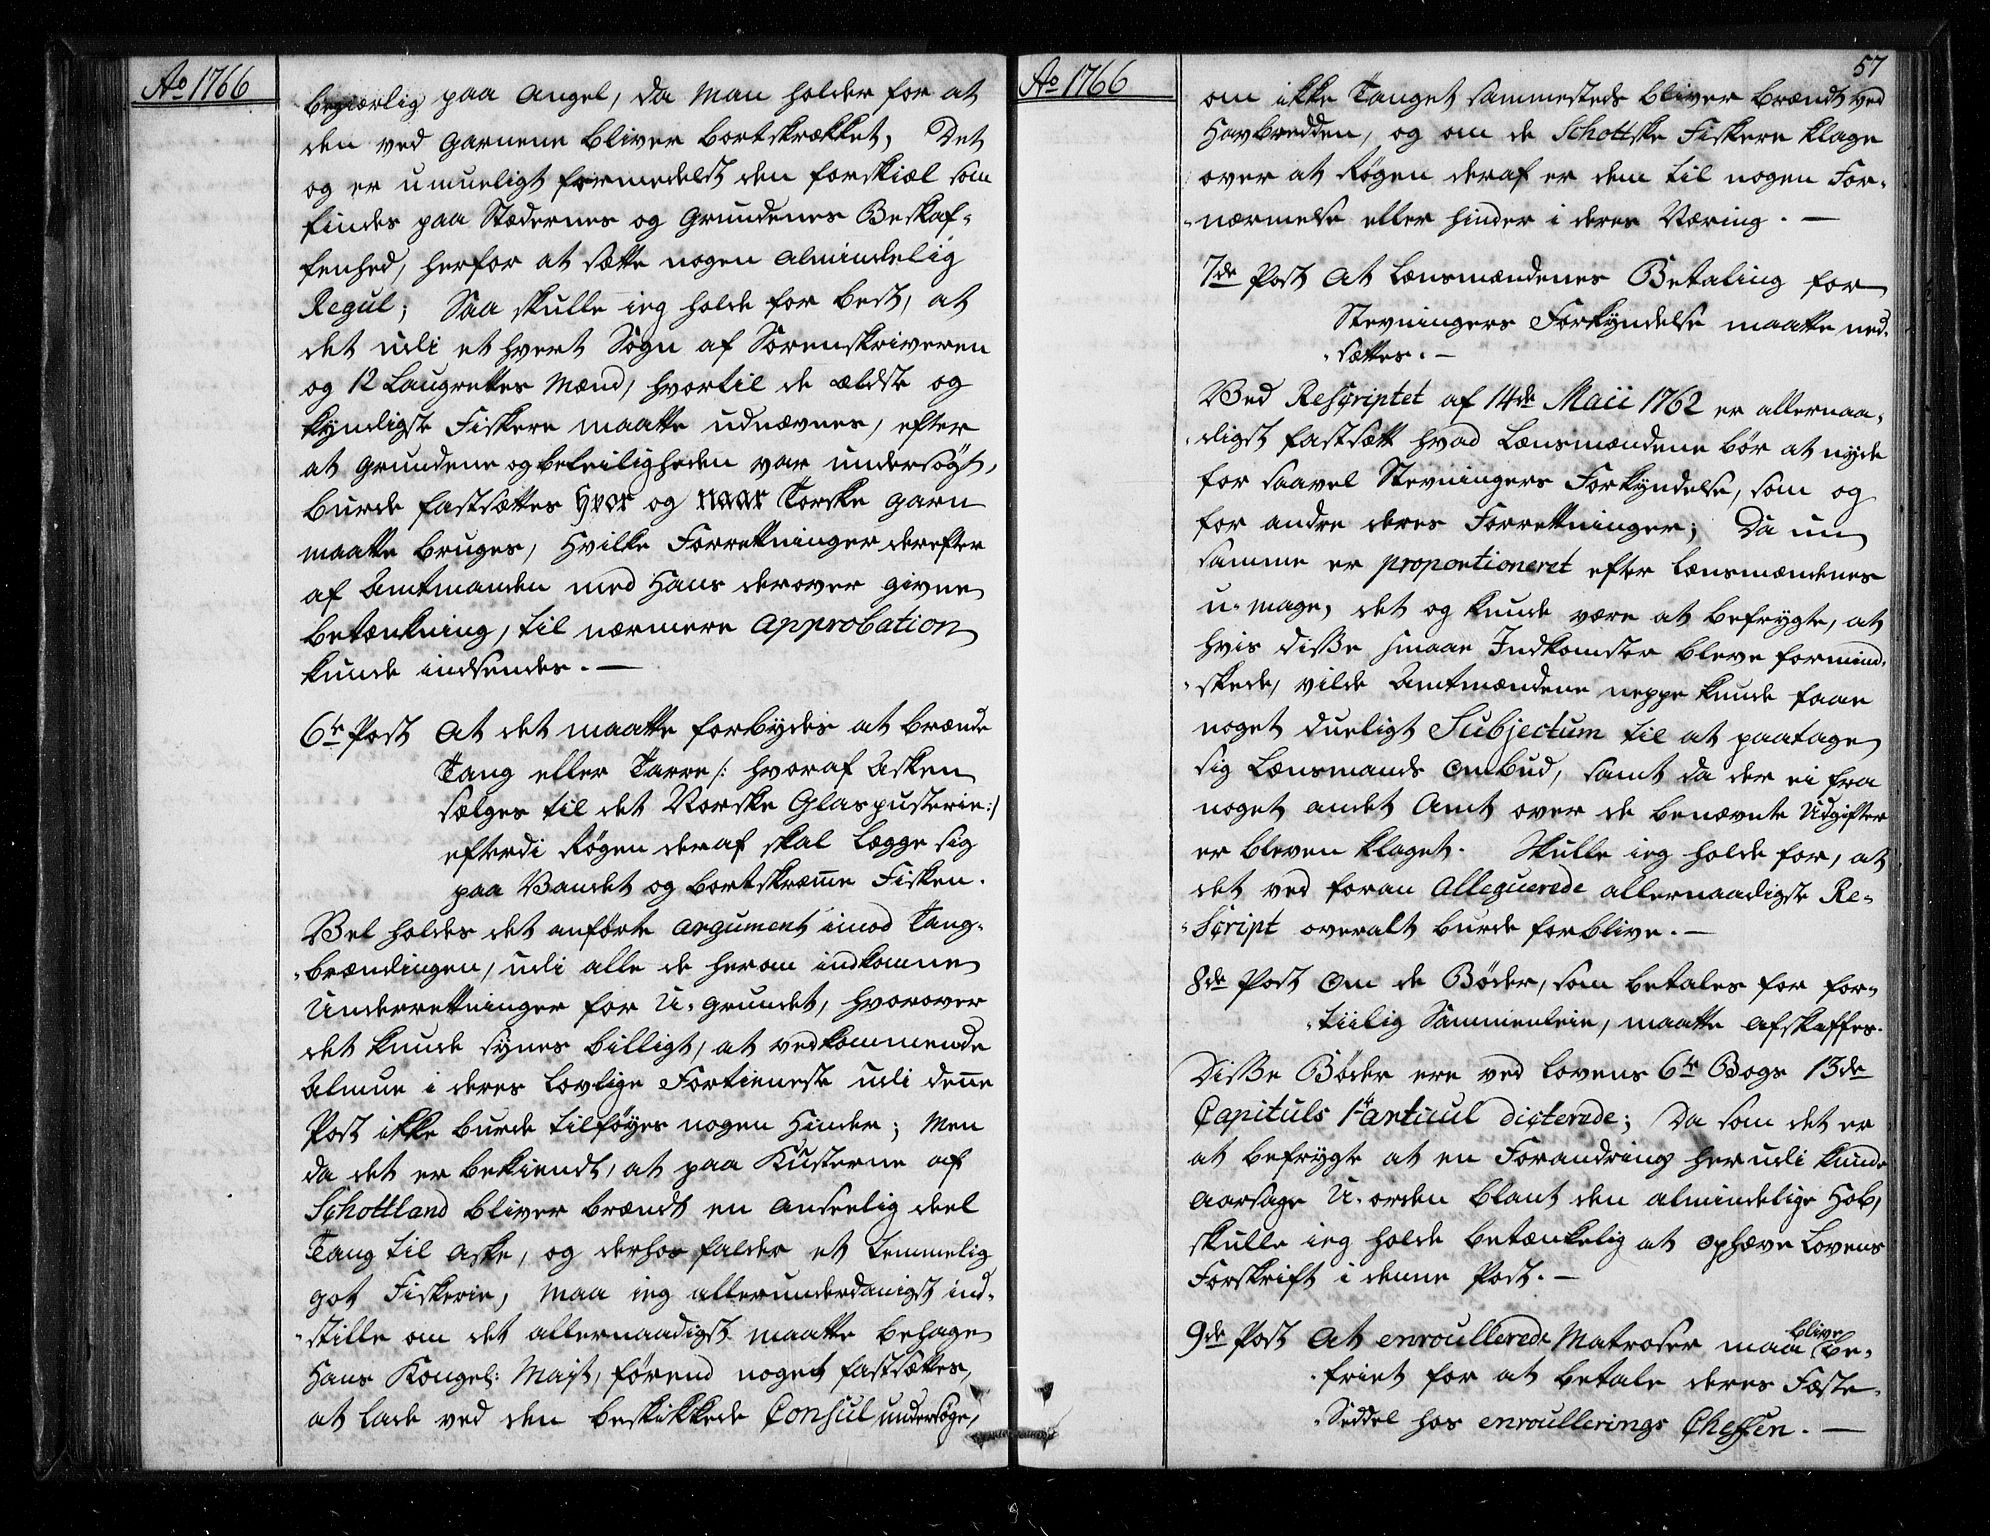 Ao 1766
begiærlig paa Angel, da Man holder for at
den ved Garnene bliver bortskrækket, Det
og er umueligt formedelst den forskiæl som
findes paa Stædernes og Grundenes Beskaf-
fenhed, herfor at sætte nogen Almindelig
Regul; Saa skulle ieg holde for best, at
det udi et hvert Sogn af Sorenskriveren
og 12 Laugrettes Mænd, hvortil de ældste og
kyndigste Fiskere maatte udnævnes, efter
at Grundene og beleiligheden var undersøgt,
burde fastsættes hvor og naar Torske garn
maatte bruges, hvilke Forretninger derefter
af Amtmanden med Hans derover givne
betænkning, til nærmere Approbation
kunde indsendes. —
6te Post At det maatte forbydes at brænde
Tang eller Tarre /: hvoraf Asken
sælges til det Norske Glaspusterie:/
efterdi Røgen deraf skal lægge sig
paa Vandet og bortskræme Fisken.
Vel holdes det anførte argument imod Tang-
-brændingen, udi alle de herom indkomne
Underretninger for U-grundet, hvorover
det kunde synes billigt, at vedkommende
Almue i deres lovlige Fortieneste udi dene
Post ikke burde tilføyes nogen Hinder; Men
da det er bekiendt, at paa Kusterne af
Schottland bliver brændt en anseelig deel
Tang til Aske, og derhos falder et temmelig
got Fiskerie, Maa ieg allerunderdanigst ind-
-stille om det allernaadigst maatte behage
Hans Kongel: Majst, førend noget fastsættes,
at lade ved den beskikkede Consul undersøge,
Ao 1766
57
om ikke Tanget sammesteds bliver brændt ved
Havbredden, og om de Schottske Fiskere klage
over at Røgen deraf er dem til nogen For-
-nærmelse eller hinder i deres Næring. —
7de Post At Lænsmændenes Betaling for
Stevningers Forkyndelse maatte ned-
-sættes. —
Ved Rescriptet af 14de Maii 1762 er allernaa-
-digst fastsatt hvad Lænsmændene bør at nyde
for saavel Stevningers Forkyndelse, som og
for andre deres Forretninger; Da nu
samme er proportioneret efter Lænsmændenes
u-mage, det og kunde være at befrygte, at
hvis diße smaae Indkomster bleve formind-
-skede, vilde Amtmændene neppe kunde faae
noget dueligt Subjectum til at paatage
sig Lænsmands Ombud, samt da der ei fra
noget andet Amt over de benævnte Udgifter
er bleven klaget. Skulle ieg holde for, at
det ved foran Alleguerede allernaadigste Re-
-script overalt burde forblive. —
8de Post Om de Bøder, som betales for for-
-tiilig Sammenleie, maatte Afskaffes.
Diße Bøder ere ved Lovens 6te Bogs 13de
Capituls 1te articul dicterede; Da som det er
at befrygte at en Forandring her udi kunde
aarsage U-orden blant den almindelige Hob,
skulle ieg holde betænkelig at ophæve Lovens
Forskrift i denne Post. —
9de Post At enroullerede Matroser maa blive be-
-friet for at betale deres Fæste-
-Seddel hos enroullerings Cheffen. —